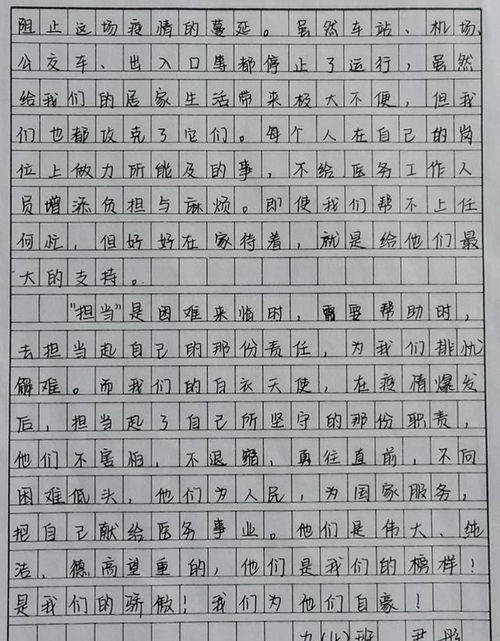 阻止这场疫情的蔓延。虽然车站、机场、
公交车、出入口等都停止了运行，虽然
给我们的居家生活带来极大不便，但我
们也都攻克了它们。每个人在自己的岗
位上做力所能及的事，不给医务工作人
员增添负担与麻烦。即使我们帮不上任
何忙，但好好在家待着，就是给他们最
大的支持。
“担当”是困难来临时，需要帮助时，
去担当起自己的那份责任，为我们排忧
解难。而我们的白衣天使，在疫情爆发
后，担当起了自己所坚守的那份职责，
他们不害怕，不退缩，勇往直前，不向
困难低头，他们为人民，为国家服务，
把自己献给医务事业。他们是伟大、纯
洁、德高望重的，他们是我们的榜样！
是我们的骄傲！我们为他们自豪！